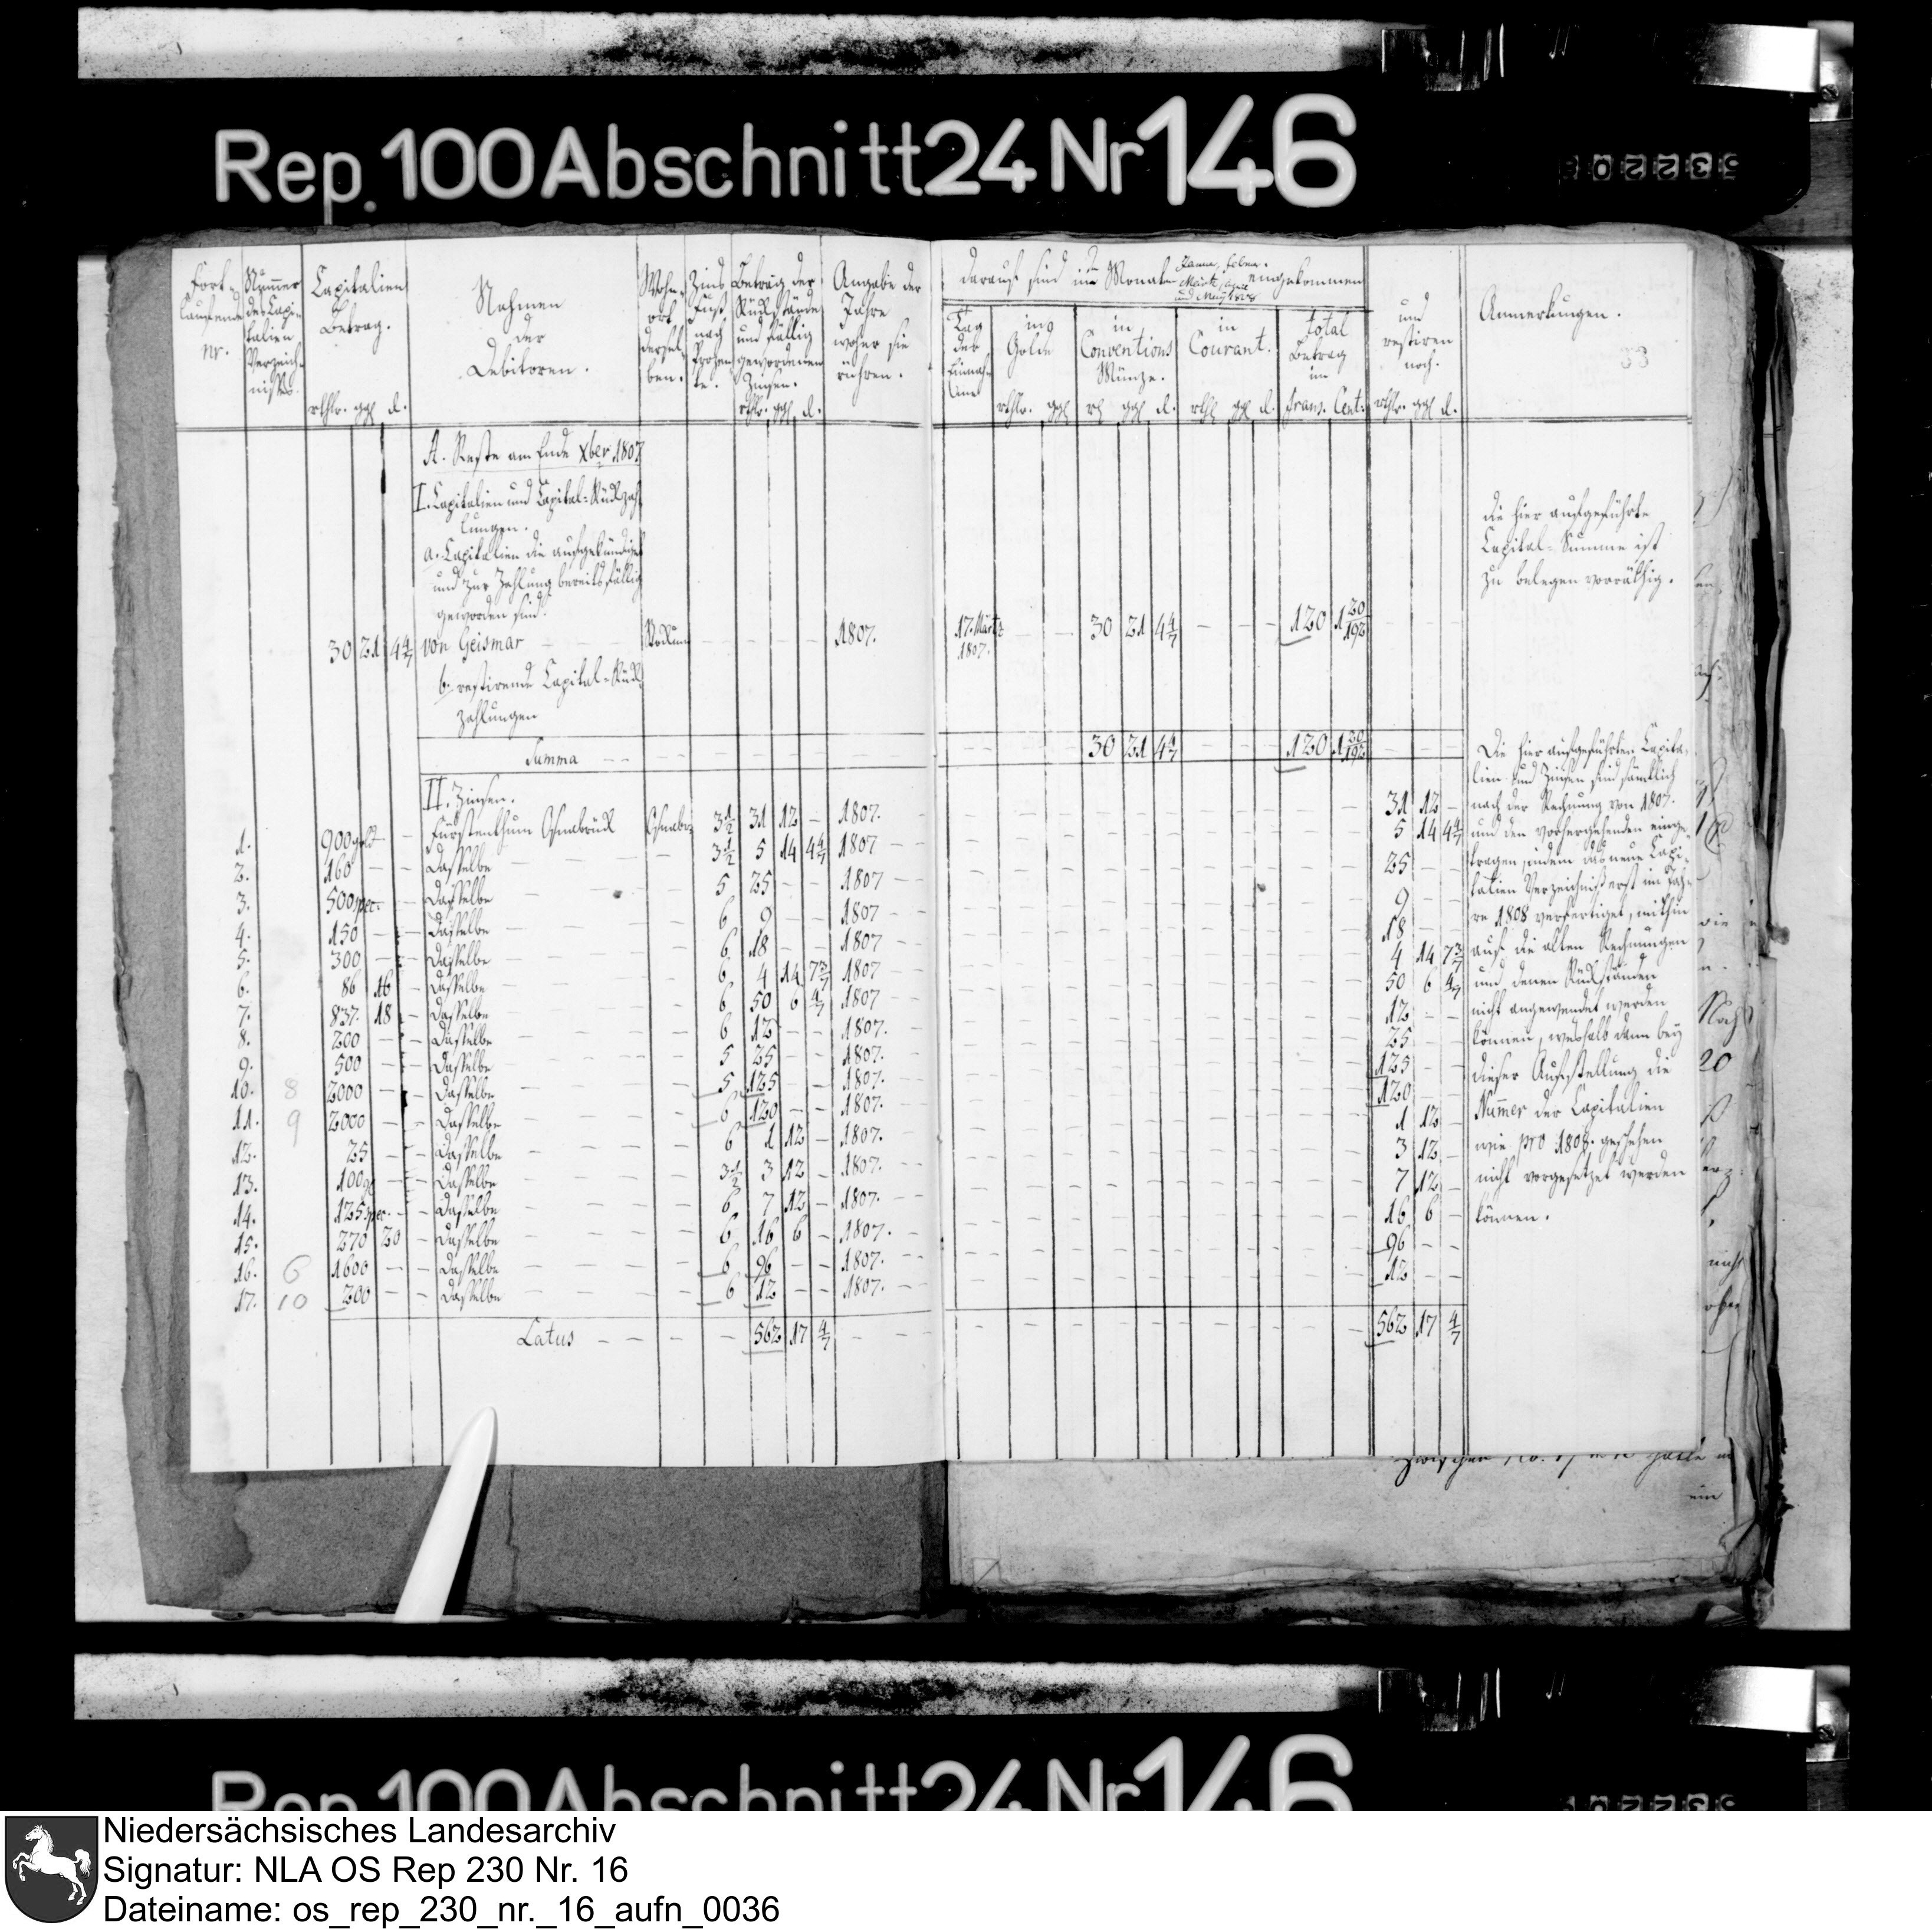 Rep. 100 Abschnitt 24 Nr 146
532208
Fort-
laufende
Nr.
Nummer
des Capi-
talien
Verzeich-
nisses.
Capitalien
Betrag.
rthlr. ggl d.
Nahmen
der
Debitoren.
Wohn-
ort
dersel-
ben.
Zins
Fuß
nach
Prozen-
te.
Betrag der
Rückstände
und fällig
gewordenen
Zinsen.
rthlr. ggl d.
Angabe der
Jahre
woher sie
rühren.
darauf sind in den Monaten Januar, Febru. Maertz, April und May 1808 eingekommen
Tag
der
Einnah-
me
in
Golde
rthlr. ggl
in
Conventions
Münze.
rl ggl d.
in
Courant.
rthl ggl d.
total
Betrag
in
franc. Cent.
und
restiren
noch.
rthlr. ggl d.
Anmerkungen.
33
A. Reste am Ende Xber 1807
I. Capitalien und Capital-Rückzah-
lungen.
a. Capitalien die aufgekündiget
und zur Zahlung bereits fällig
geworden sind.
30 21 4 4/7 von Geismar – – – – 1807. 17. Märtz 1807. – – 30 21 4 4/7 – – – 120 1 20/192 – – –
b. restirende Capital-Rück-
zahlungen
Summa – – – – 30 21 4 4/7 – – – 120 1 20/192 – – –
II. Zinsen.
1. 900 gold – Fürstenthum Osnabrück Osnabrü 3 1/2 31 12 – 1807. 31 12 –
2. 160 – – Dasselbe 3 1/2 5 14 4 4/7 1807 5 14 4 4/7
3. 500 per – Dasselbe 5 25 – – 1807 25 – –
4. 150 – – Dasselbe 6 9 – – 1807 9 – –
5. 300 – – Dasselbe 6 18 – – 1807 18 – –
6. 86 16 – Dasselbe 6 4 14 7 3/7 1807 4 14 7 3/7
7. 837. 18 – Dasselbe 6 50 6 4/7 1807 50 6 4/7
8. 200 – – Dasselbe 6 12 – – 1807. 12 – –
9. 500 – – Dasselbe 5 25 – – 1807. 25 – –
10. 8 2000 – – Dasselbe 5 125 – – 1807. 125 – –
11. 9 2000 – – Dasselbe 6 120 – – 1807. 120 – –
12. 25 – – Dasselbe 6 1 12 – 1807. 1 12 –
13. 100 g – – Dasselbe 3 1/2 3 12 – 1807. 3 12 –
14. 125 per. – – Dasselbe 6 7 12 – 1807. 7 12 –
15. 270 20 – Dasselbe 6 16 6 – 1807. 16 6 –
16. 6 1600 – – Dasselbe 6 96 – – 1807. 96 – –
17. 10 200 – – Dasselbe 6 12 – – 1807. 12 – –
Latus – – – – 562 17 4/7 – – 562 17 4/7
die hier aufgeführte
Capital-Summe ist
zu belegen vorräthig.
Die hier aufgeführten Capita-
lien und Zinsen sind sämtlich
nach der Rechnung von 1807.
und den vorhergehenden einge-
tragen, indem das neue Capi-
talien Verzeichniß erst im Jah-
re 1808 verfertiget, mithin
auf die alten Rechnungen
und denen Rückständen
nicht angewendet werden
können, weshalb dann bey
dieser Aufstellung die
Nummer der Capitalien
wie pro 1808. geschehen
nicht vorgesetzet werden
können.
wie
Noch
20
nicht
ein
Rep. 100 Abschnitt 24 Nr 146
Niedersächsisches Landesarchiv
Signatur: NLA OS Rep 230 Nr. 16
Dateiname: os_rep_230_nr._16_aufn_0036